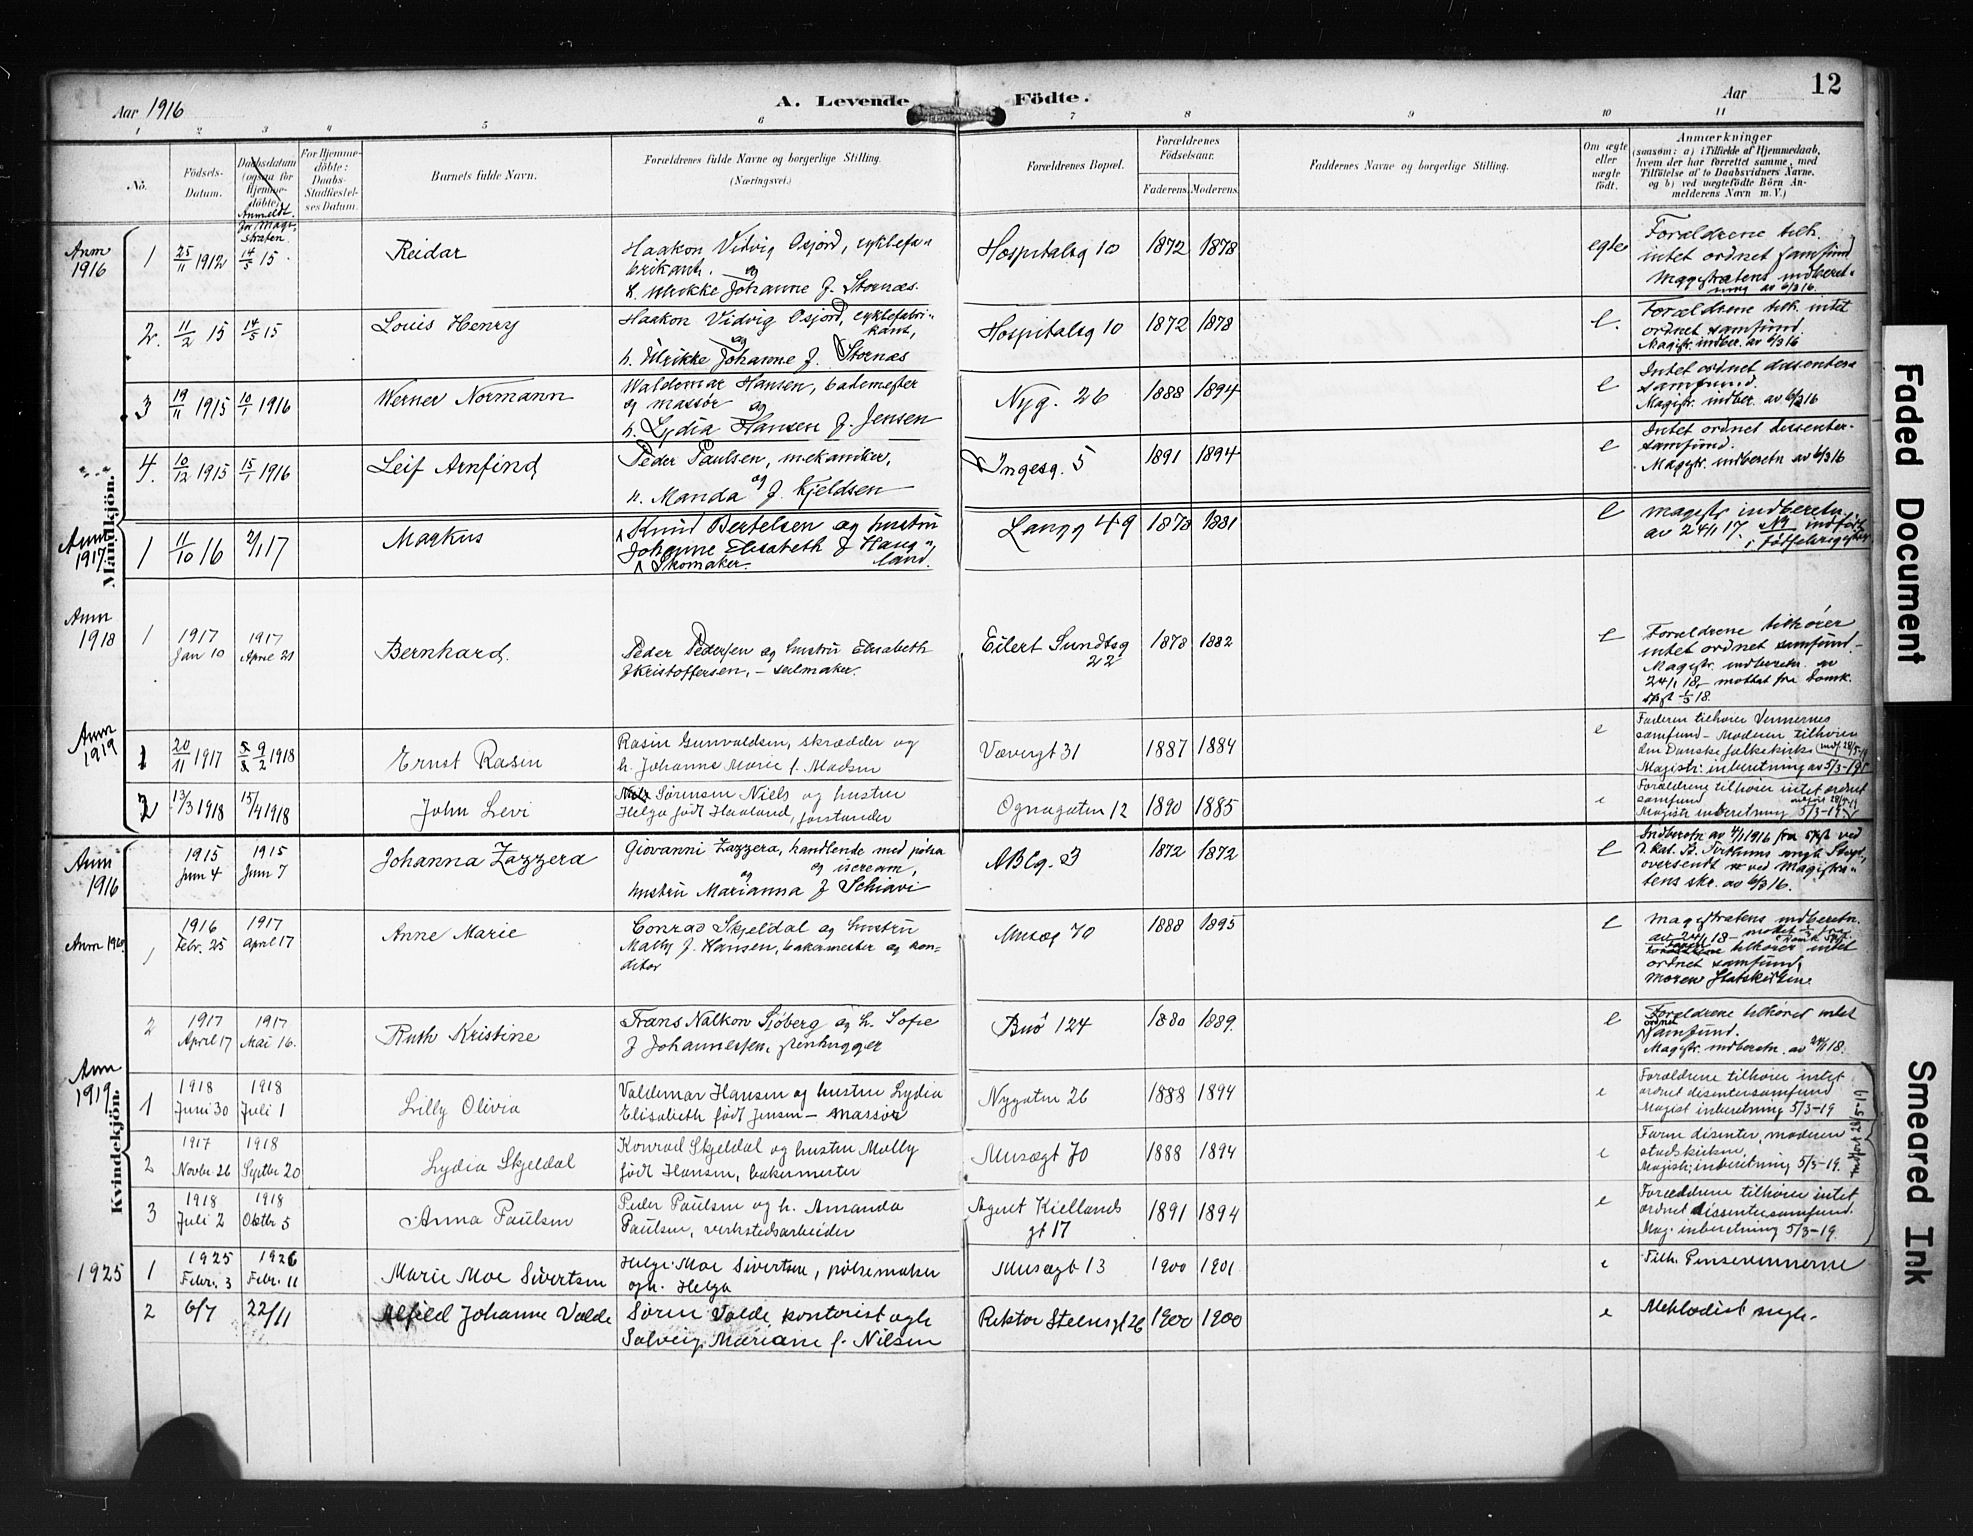 Aar 1916
A. Levende Födte.
Aar
12
1 2 3 4 5 6 7 8 9 10 11
No.
Födsels-Datum.
Daabsdatum (ogsaa for Hjemme-döbte).
Anmeldt for Magi-straten.
For Hjemme-döbte: Daabs-Stadfæstel-ses Datum.
Barnets fulde Navn.
Forældrenes fulde Navne og borgerlige Stilling.
(Næringsvei.)
Forældrenes Bopæl.
Forældrenes Födselsaar.
Faderens. Moderens.
Faddernes Navne og borgerlige Stilling.
Om ægte eller uægte födt.
Anmærkninger
(saasom: a) i Tilfælde af Hjemmedaab, hvem der har forrettet samme, med Tilföielse af to Daabsvidners Navne, og b) ved uægtefödte Börn An-melderens Navn m. V.)
Mandkjön.
Anm 1916
1 25/11 1912 14/5 15 Reidar
Haakon Vidvig Osjord, cyklefa-
brikant. og
h. Ulrikke Johanne f. Stornæs.
Hospitalsg 10 1872 1878 egte
Forældrene tilh.
intet ordnet samfund
Magistratens indberet-
ning av 6/3 16.
2. 11/2 15 14/5 15 Louis Henry
Haakon Vidvig Osjord, cyklefabri-
kant, og
h. Ulrikke Johanne f. Stornæs
Hospitalsg 10 1872 1878 e.
Forældrene tilh. intet
ordnet samfund.
Magistr. indber. av 6/3 16
3 19/11 1915 10/1 1916 Werner Normann
Waldemar Hansen, bademester
og massør og
h. Lydia Hansen f. Jensen
Nyg. 26 1888 1894 e
Intet ordnet dissenter
samfund.
Magistr. indber. av 6/3 16
4. 10/12 1915 15/1 1916 Leif Arnfind
Peder Paulsen, mekaniker,
og
h. Manda f. Kjeldsen
Ingesg. 5 1891 1894 e
Intet ordnet dissenter-
samfund.
Magistr. indberetn av 6/3 16
Anm 1917
1 11/10 16 2/1 17 Markus
Knud Bertelsen og hustru
Johanne Elisabeth f Haug-
land.
Skomaker.
Langg 49 1878 1881 e
Magistr indberetn.
av 24/1 17. No indført
i Fødselsregister
Anm 1918
1 1917 Jan 10 1917 April 21 Bernhard.
Peder Pedersen og hustru Elisabeth
f Kristoffersen, - seilmaker.
Eilert Sundtsg 22 1878 1882 e
Forældrene tilhører
intet ordnet samfund.-
Magistr. indberetn. av
24/1 18,- mottat fra Domk.
1/3 18.
Anm 1919
1 20/11 1917 9/2 1918 Ernst Rasin
Rasin Gunvaldsen, skrædder og
h. Johanne Marie f. Madsen
Vævergt 31 1887 1884 e
Faderen tilhører Vennernes
samfund - Moderen tilhører
den Danske folkekirke (indf. 28/5-19
Magistr: inberetning av 5/3-19
2 13/3 1918 15/4 1918 John Levi
Sörensen Niels og hustru
Helga født Haaland, forstander
Ognagaten 12 1890 1885 e
Forældrene tilhører intet ordnet
samfund
Magistr inberetning 5/3-19
Kvindekjön.
Anm 1916
1915 Juni 4 1915 Juni 7 Johanna Zazzera
Giovanni Zazzera, handlende med pølse
og iscream,
og
hustru Marianna f Schiavi
ABCg. 3 1872 1872 e
Indberetn av 4/1 1916 fra ved
oversendt ved Magistra-
tens skr. av 6/3 16.
Anm
1 1916 Febr. 25 1917 April 17 Anne Marie
Conrad Skjeldal og hustru
Mally f. Hansen, bakermester og kon-
ditor
Musæg 70 1888 1895 e
Magistratens indberetn.
av 24/1 18 -
tilhører intet
ordnet samfund,
moren Statskirken.
2 1917 April 17 1917 Mai 16. Ruth Kristine
Frans Nalkon Sjøberg og h. Sofie
f Johannessen, stenhugger
Buö 124 1880 1889. e
Forældrene tilhører intet
ordnet samfund.
Magistr. indberetn. av 24/1 18.
Anm 1919
1 1918 Juni 30 1918 Juli 1 Lilly Olivia
Valdemar Hansen og hustru Lydia
Elisabeth født Jensen - massør
Nygaten 26 1888 1894 e
Forældrene tilhører intet
ordnet disentersamfund
Magist inberetning 5/3-19
2 1917 Novbr 26 1918 Septbr 20 Lydia Skjeldal
Konrad Skjeldal og hustru Mally
født Hansen, bakermester
Musægt 70 1888 1894 e
Faren disenter, moderen
statskirken,
Magistr; inberetning 5/3-19.
3 1918 Juli 2 1918 Oktbr 5 Anna Paulsen
Peder Paulsen og h. Amanda
Paulsen, verkstedsarbeider
Agent Kiellands gt 17 1891 1894 e
Forældrene tilhører intet
ordnet dissentersamfund.
Mag. inberetning 5/3-19.
indført 28/5-19
1925
1 1925 Febr. 3 1926 Febr. 11 Marie Moe Sivertsen
Helge Moe Sivertsen, pølsemaker
og h. Helga
Musægt 13 1900 1901 e
Tilh. Pinsevennerne
2 6/7 22/11 Alfild Johanne Valde
Sören Valde, kontorist og h
Solveig Mariane f. Nilsen
Rektor Steensgt 26 1900 1900 e
Methodist mgh.
Faded Document
Smeared Ink